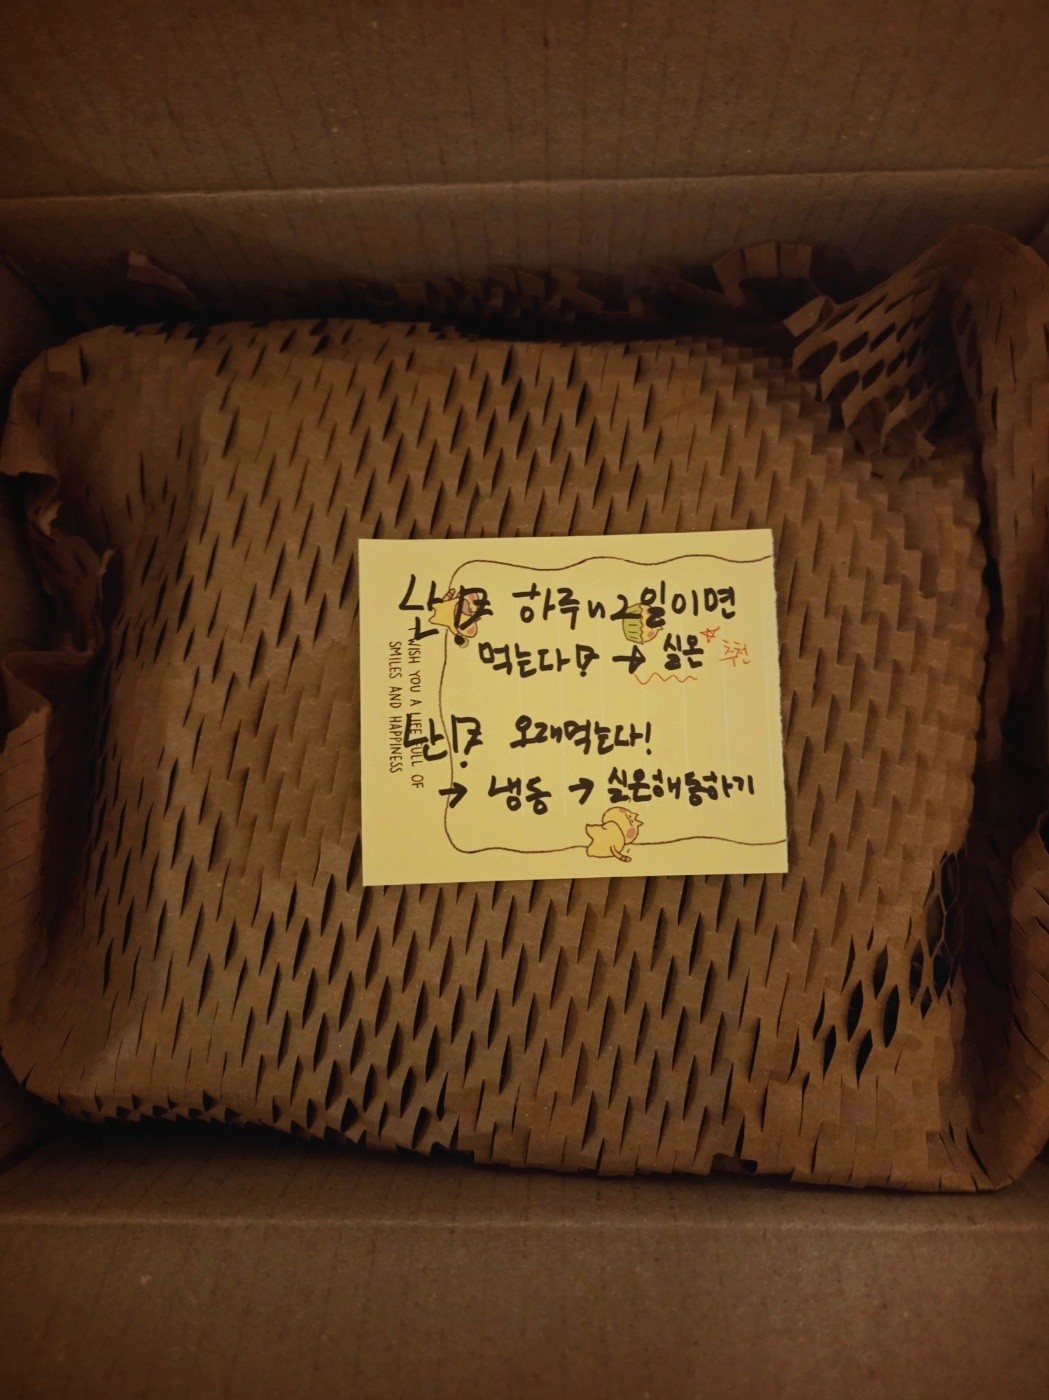 하루 2일이면
먹는다 → 실온 추천
난 오래먹는다!
→ 냉동 → 실온해동하기
WISH YOU A LIFE FULL OF
SMILES AND HAPPINESS